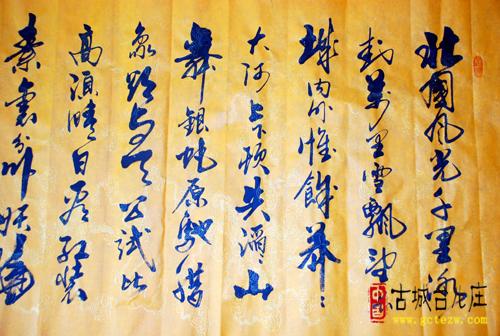 北國风光千里冰
封萬里雪飄望
城内外惟餘莽〻
大河上下顿失滔山
舞銀蛇原馳蜡
象欲与天公試比
高須晴日看红装
素裹分外妖嬈
古城台儿庄
www.gctezw.com